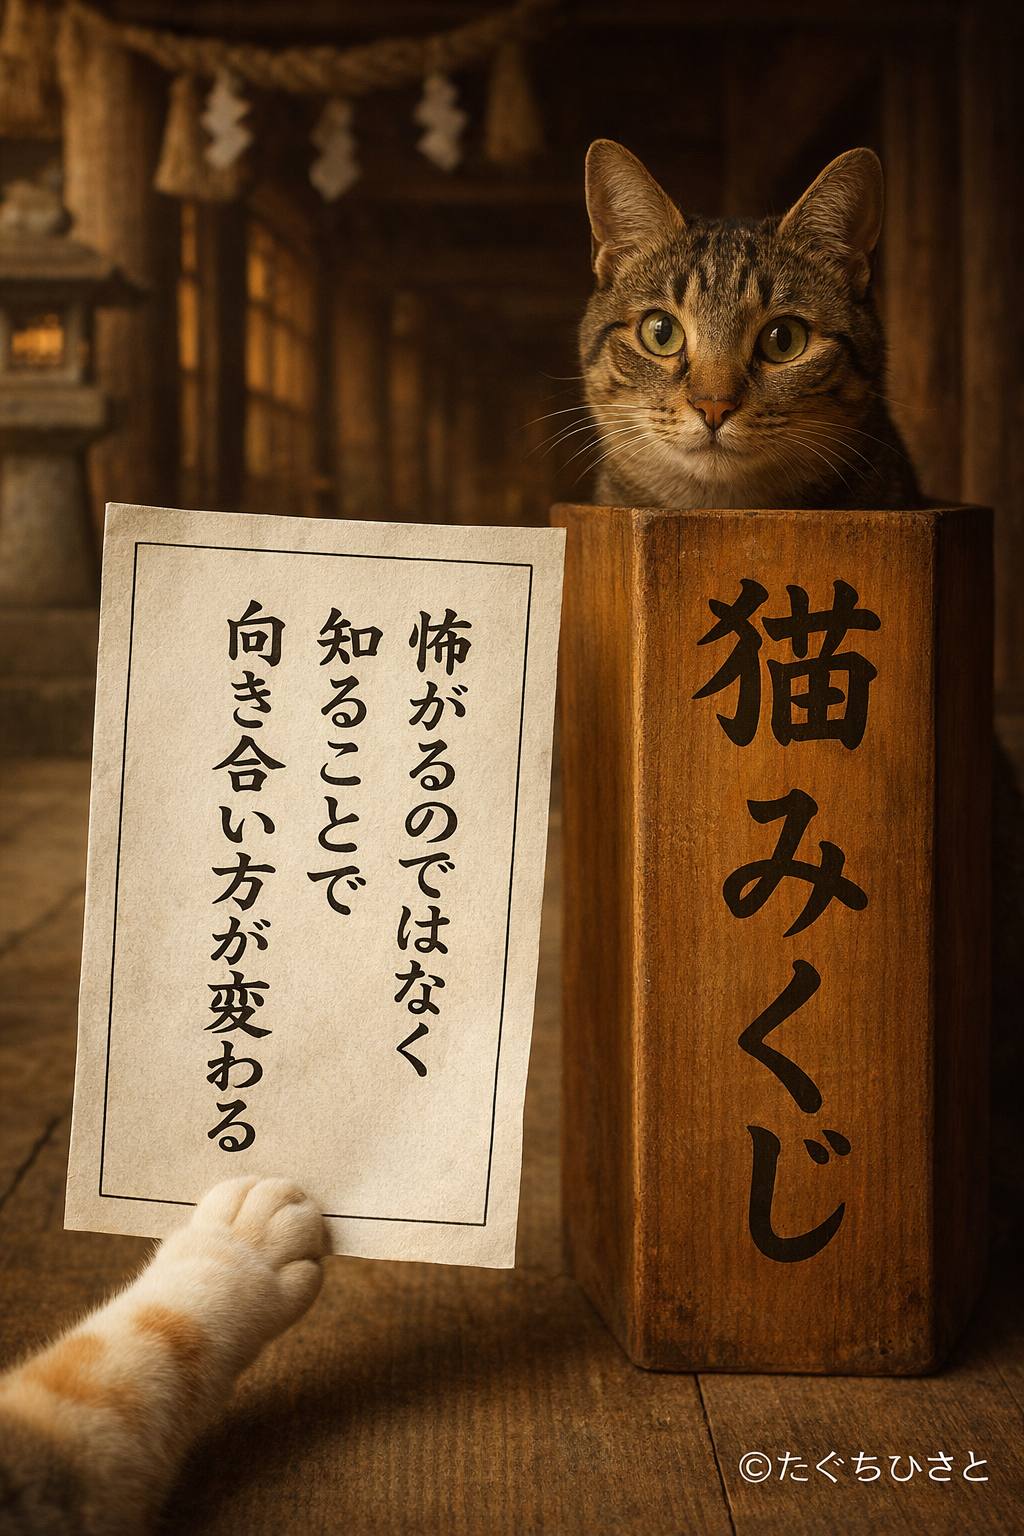 怖がるのではなく
知ることで
向き合い方が変わる
猫みくじ
©たぐちひさと